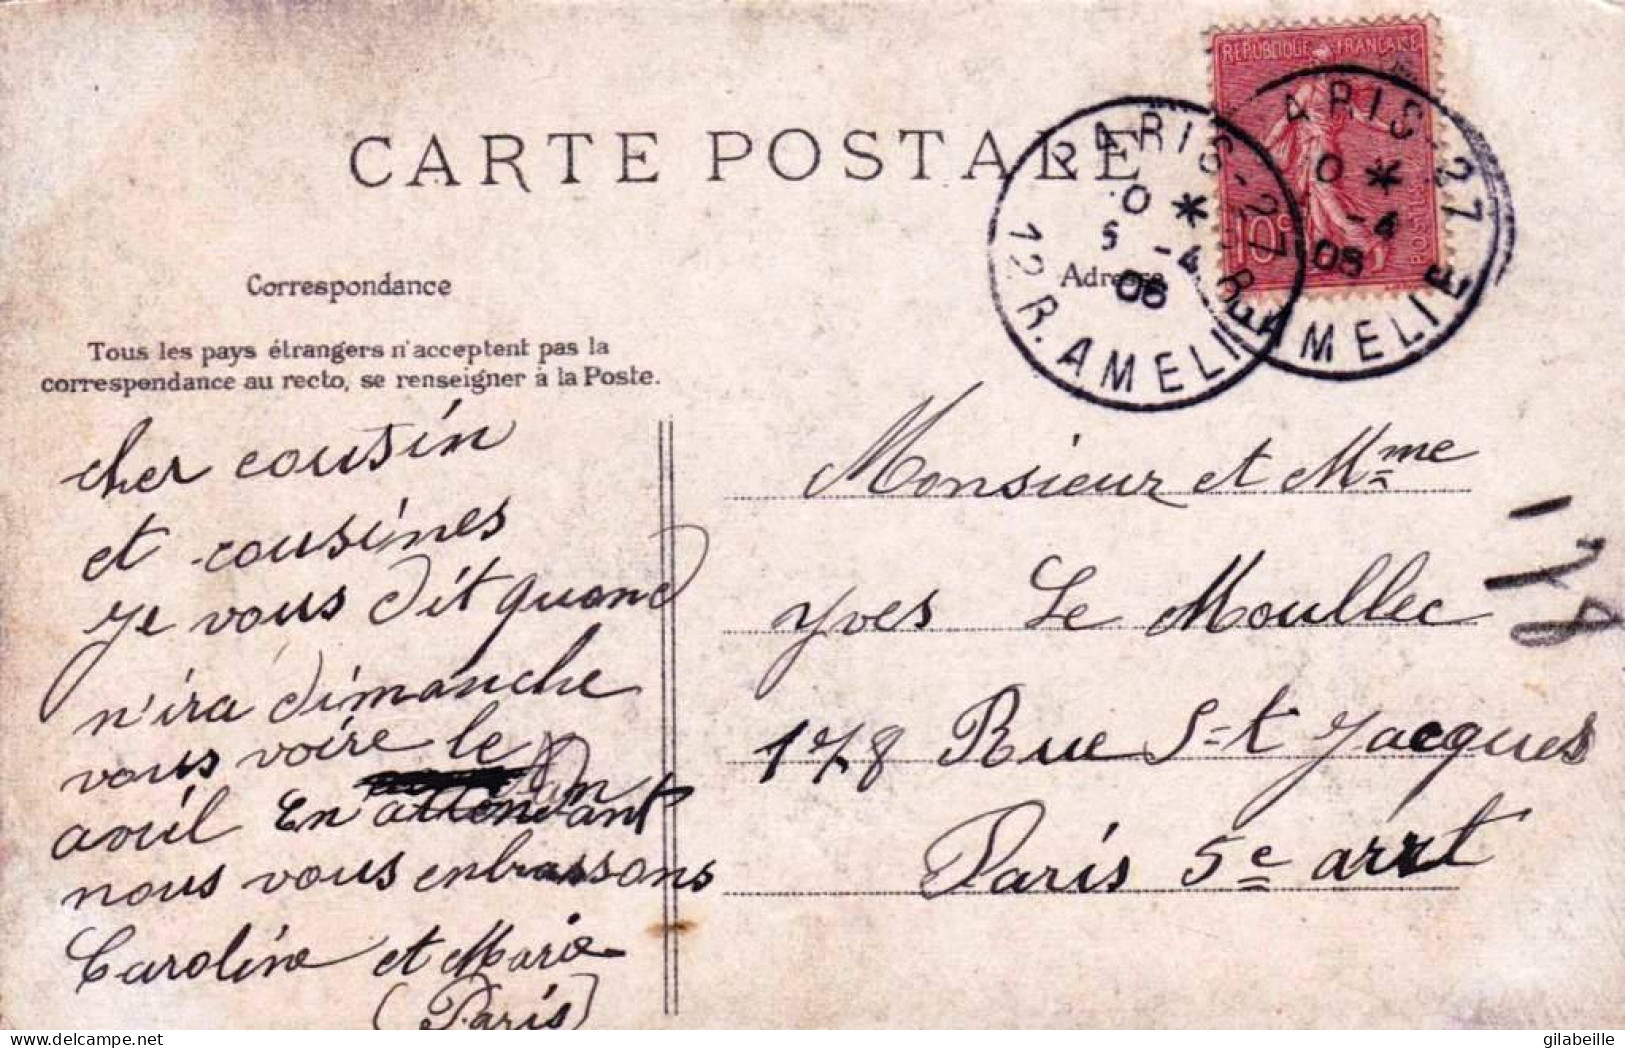 CARTE POSTALE
RÉPUBLIQUE FRANÇAISE
10c
POSTES
PARIS-27
5 -4
06
12 R. AMELIE
ARIS-27
-4
06
AMELIE
Correspondance
Adresse
Tous les pays étrangers n'acceptent pas la
correspondance au recto, se renseigner à la Poste.
cher cousin
et cousines
je vous dit quand
n'ira dimanche
vous voire le
avril En attendant
nous vous enbrassons
Caroline et Marie
(Paris)
Monsieur et Mme
Yves Le Moullec
178 Rue St Jacques
Paris 5e arrt
gilabeille